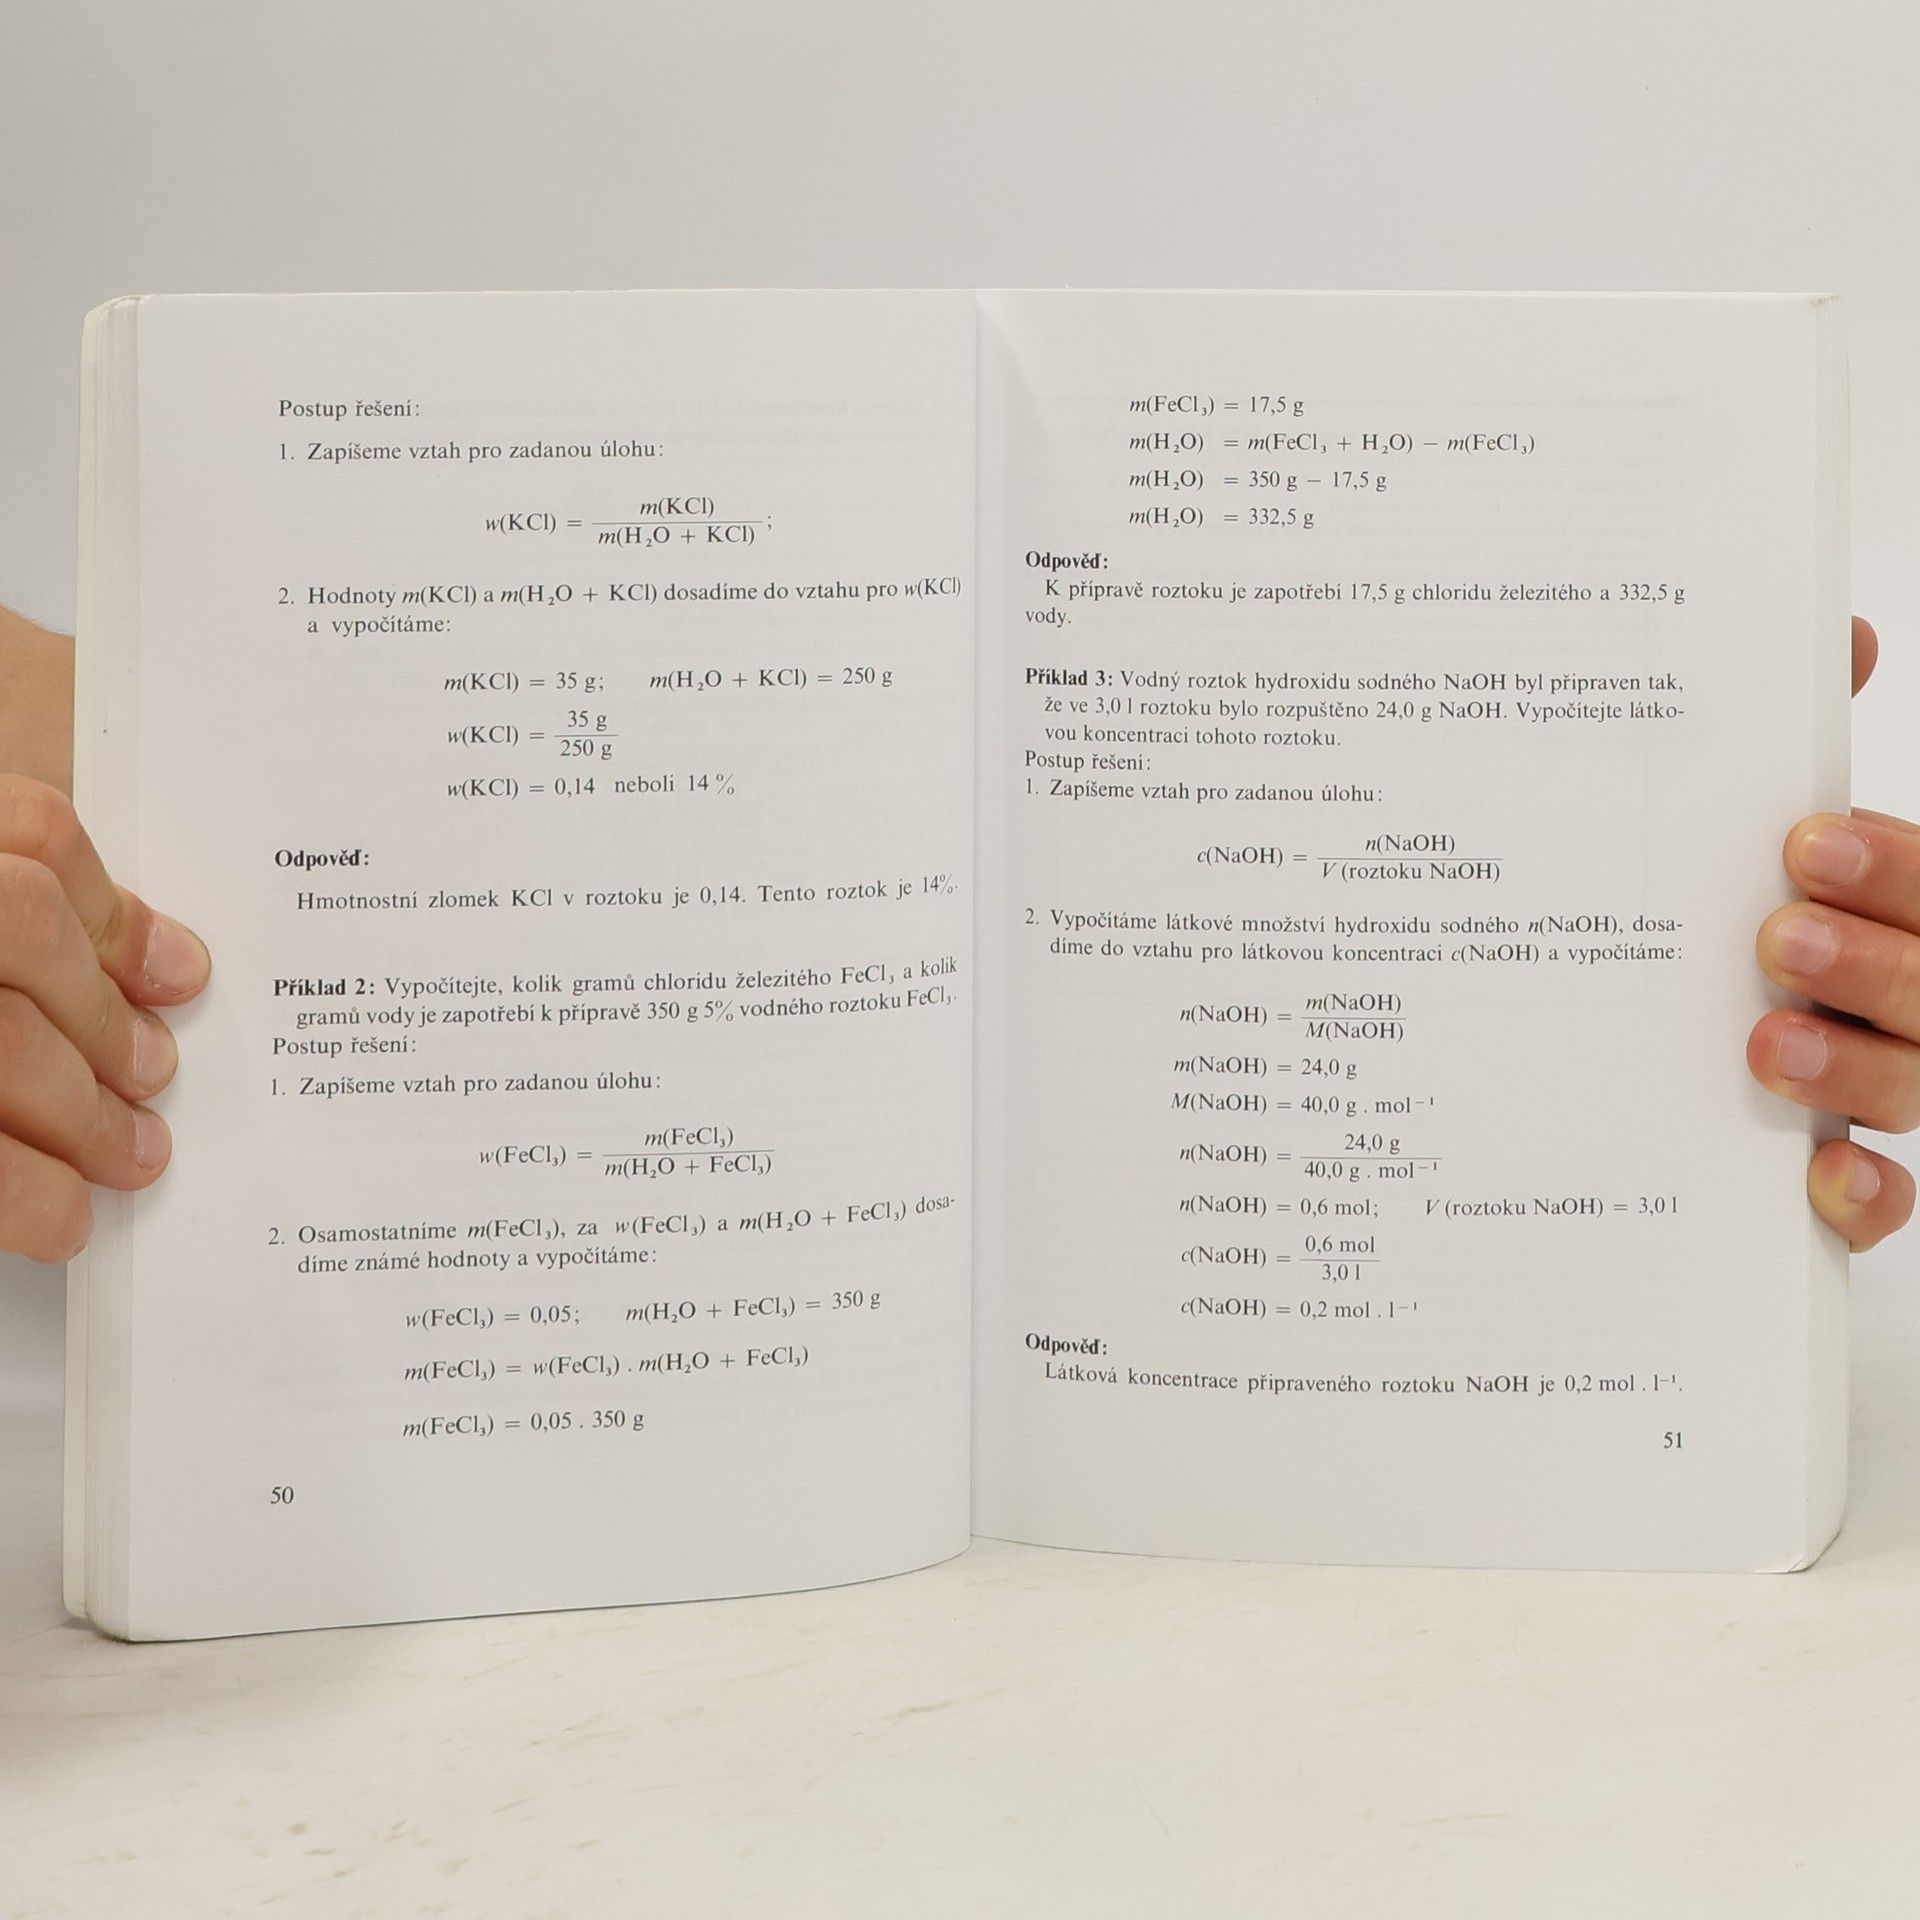 Postup řešení:
1. Zapíšeme vztah pro zadanou úlohu:
w(KCl) = m(KCl) / m(H₂O + KCl) ;
2. Hodnoty m(KCl) a m(H₂O + KCl) dosadíme do vztahu pro w(KCl)
a vypočítáme:
m(KCl) = 35 g; m(H₂O + KCl) = 250 g
w(KCl) = 35 g / 250 g
w(KCl) = 0,14 neboli 14 %
Odpověď:
Hmotnostní zlomek KCl v roztoku je 0,14. Tento roztok je 14%.
Příklad 2: Vypočítejte, kolik gramů chloridu železitého FeCl₃ a kolik
gramů vody je zapotřebí k přípravě 350 g 5% vodného roztoku FeCl₃.
Postup řešení:
1. Zapíšeme vztah pro zadanou úlohu:
w(FeCl₃) = m(FeCl₃) / m(H₂O + FeCl₃)
2. Osamostatníme m(FeCl₃), za w(FeCl₃) a m(H₂O + FeCl₃) dosa-
díme známé hodnoty a vypočítáme:
w(FeCl₃) = 0,05; m(H₂O + FeCl₃) = 350 g
m(FeCl₃) = w(FeCl₃) . m(H₂O + FeCl₃)
m(FeCl₃) = 0,05 . 350 g
50
m(FeCl₃) = 17,5 g
m(H₂O) = m(FeCl₃ + H₂O) − m(FeCl₃)
m(H₂O) = 350 g − 17,5 g
m(H₂O) = 332,5 g
Odpověď:
K přípravě roztoku je zapotřebí 17,5 g chloridu železitého a 332,5 g
vody.
Příklad 3: Vodný roztok hydroxidu sodného NaOH byl připraven tak,
že ve 3,0 l roztoku bylo rozpuštěno 24,0 g NaOH. Vypočítejte látko-
vou koncentraci tohoto roztoku.
Postup řešení:
1. Zapíšeme vztah pro zadanou úlohu:
c(NaOH) = n(NaOH) / V (roztoku NaOH)
2. Vypočítáme látkové množství hydroxidu sodného n(NaOH), dosa-
díme do vztahu pro látkovou koncentraci c(NaOH) a vypočítáme:
n(NaOH) = m(NaOH) / M(NaOH)
m(NaOH) = 24,0 g
M(NaOH) = 40,0 g . mol⁻¹
n(NaOH) = 24,0 g / 40,0 g . mol⁻¹
n(NaOH) = 0,6 mol; V (roztoku NaOH) = 3,0 l
c(NaOH) = 0,6 mol / 3,0 l
c(NaOH) = 0,2 mol . l⁻¹
Odpověď:
Látková koncentrace připraveného roztoku NaOH je 0,2 mol . l⁻¹.
51